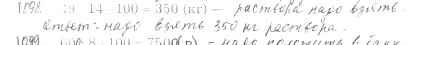 1098. 49 : 14 · 100 = 350 (кг) — раствора надо взять.
Ответ: надо взять 350 кг раствора.
1099. 600 : 8 · 100 = 7500(р) - надо положить в банк